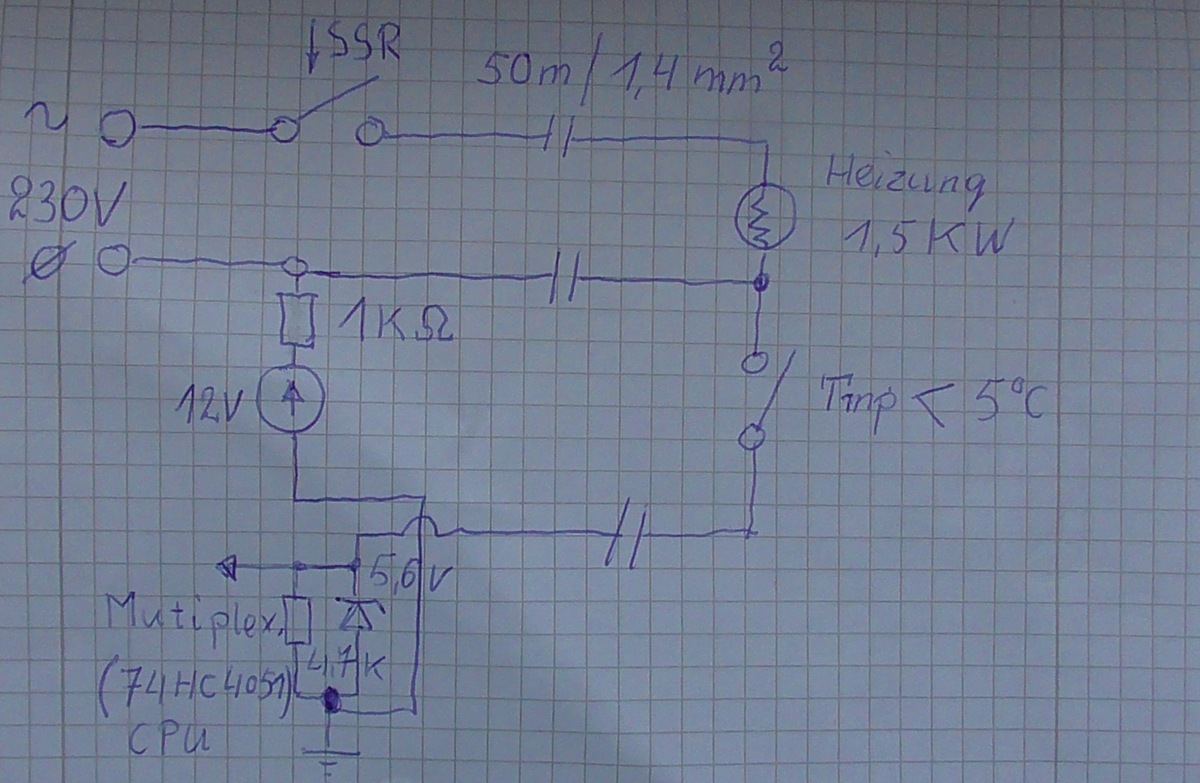 ↓SSR
50m / 1,4 mm²
~
230V
Ø
Heizung
1,5 KW
1KΩ
12V
Tmp < 5°C
5,6 V
Mutiplex.
4,7K
(74HC4051)
CPU